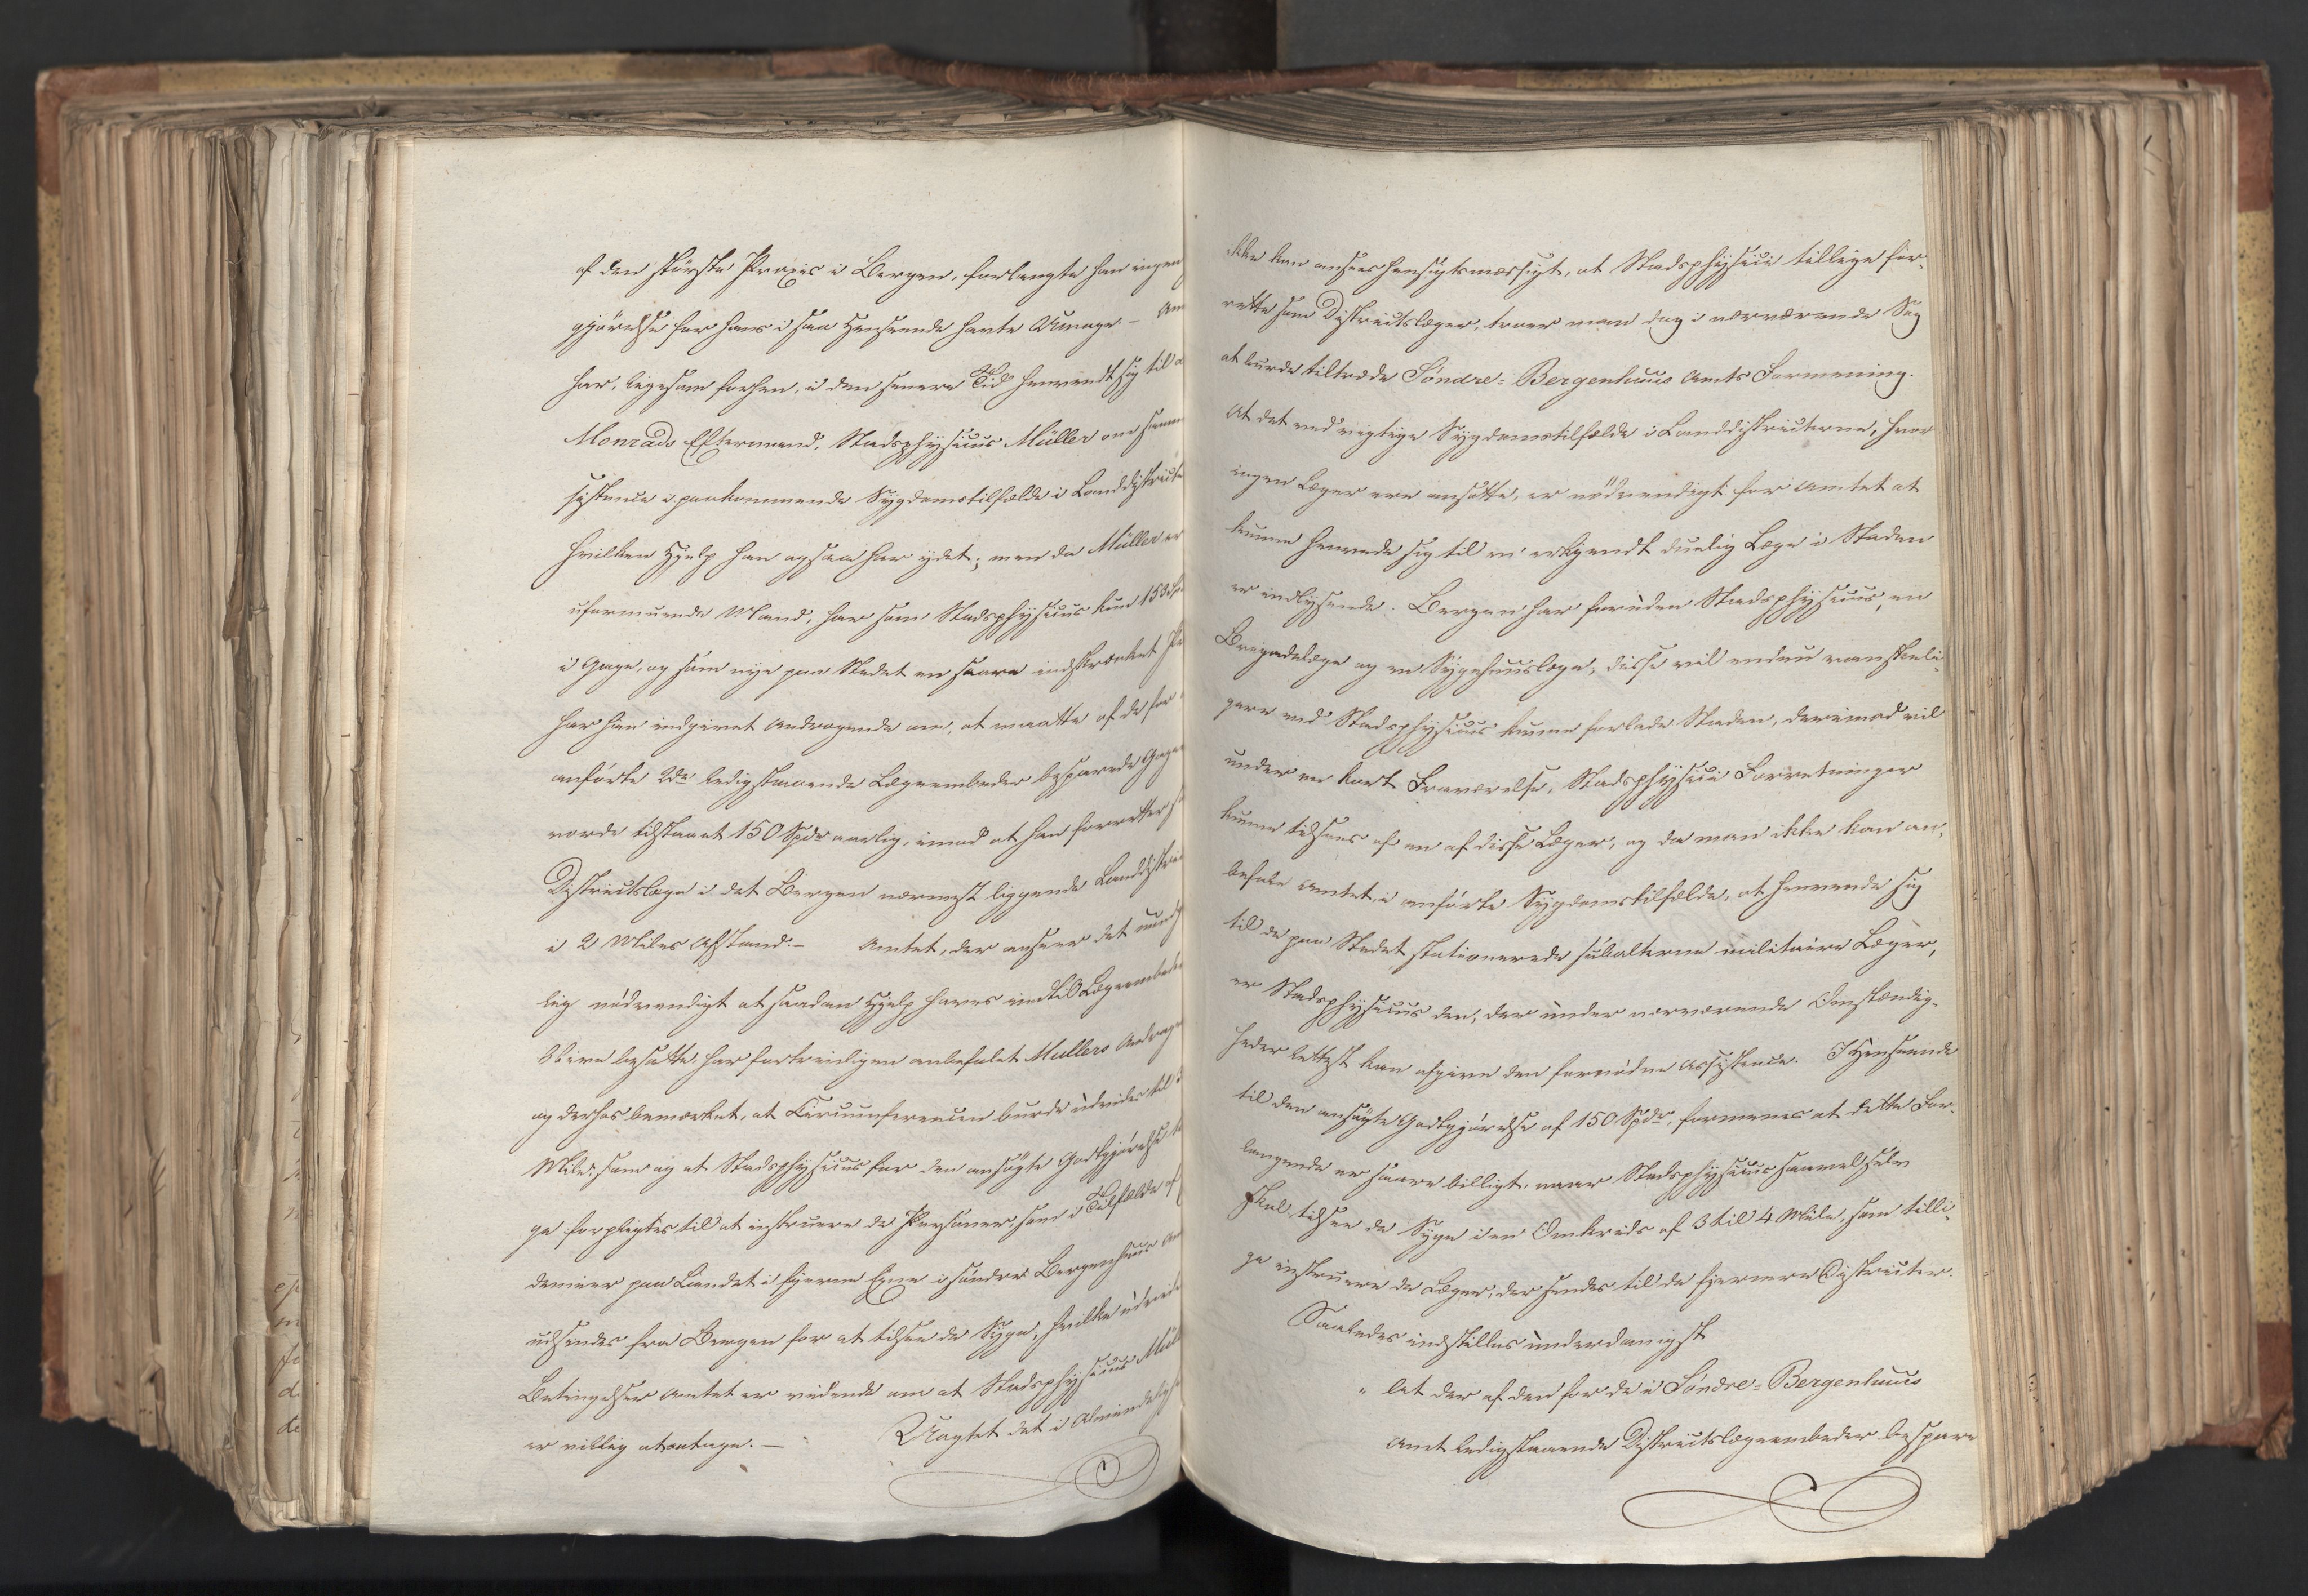 af den största Praxis i Bergen, forlangte han ingen
gjörelse for hans i saa Henseende havte Umage. – Am
har, ligesom forhen, i den senere Tid henvendt sig til
Monrads Eftermand, Stadsphysicus Müller om samm
sistence i paakommende Sygdomstilfælde i Landdistricte
hvilken Hjelp han ogsaa har ydet; men da Müller er
uformuende Mand, har som Stadsphysicus kun 153
i Gage, og som nye paa Stedet en saare indskrænket Pr
har han indgivet Andragende om, at maatte af de for
anførte 2de ledigstaaende Lægeembeder besparede Gager
vorde tilstaaet 150 Spdr aarlig, imod at han forretter
Districtslæge i det Bergen nærmest liggende Landdistri
i 2 Miles Afstand. – Amtet, der anseer det
lig nödvendigt at saadan Hjelp haves indtil Lægeembede
blive besatte, har fortrinligen anbefalet Müllers Andrag
og derhos bemærket, at Circumferencen burde udvides til
Mile, som og at Stadsphysicus for den ansøgte Godtgjörelse
ge forpligtes til at instruere de Personer, som i Tilfælde af
demier paa Landet i fjerne Egne i søndre Bergenhuus Am
udsendes fra Bergen for at tilsee de Syge, hvilke udvid
Betingelser Amtet er vidende om at Stadsphysicus Mül
er villig at antage. – Uagtet det i Almindelig
ikke kan ansees hensigtsmæssigt, at Stadsphysici tillige for-
rette som Districtslæger, troer man dog i nærværende Sag
at burde tiltræde Söndre-Bergenhuus Amts Formening.
At det ved vigtige Sygdomstilfælde i Landdistricterne, hvor
ingen Læger ere ansatte, er nödvendigt for Amtet at
kunne henvende sig til en erkjendt duelig Læge i Staden
er indlysende. Bergen har foruden Stadsphysicus, en
Brigadelæge og en Sygehuuslæge; disse vil endnu vanskeli-
gere end Stadsphysicus kunne forlade Staden, derimod vil
under en kort Fraværelse, Stadsphysici Forretninger
kunne tilsees af en af disse Læger, og da man ikke kan an-
befale Amtet, i anførte Sygdomstilfælde, at henvende sig
til de paa Stedet stationerede subalterne militaire Læger,
er Stadsphysicus den, der under nærværende Omstændig-
heder lettest kan afgive den fornödne Assistence. I Henseende
til den ansøgte Godtgjörelse af 150 Spdr, formenes at dette For-
langende er saare billigt, naar Stadsphysicus saavel selv
skal tilsee de Syge i en Omkreds af 3 til 4 Mile, som tilli-
ge instruere de Læger, der sendes til de fjernere Districter.
Saaledes indstilles underdanigst
" let der af den for de i Söndre-Bergenhuus
Amt ledigstaaende Districtslægeembeder bespare